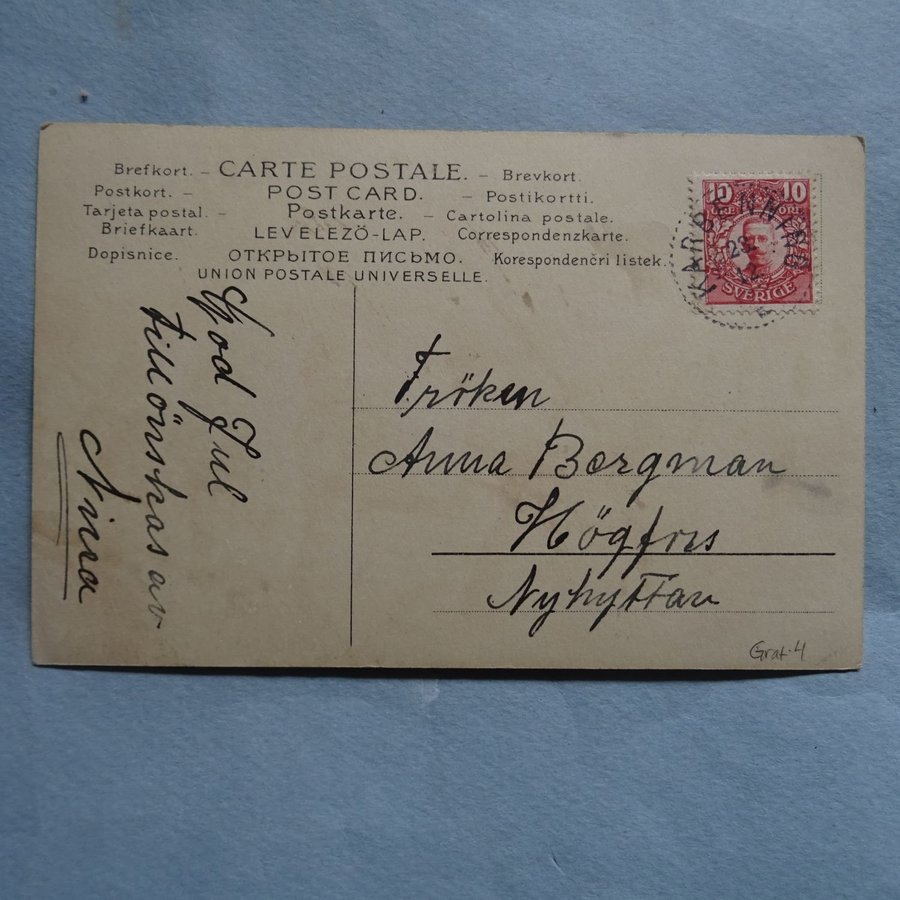 Brefkort. – CARTE POSTALE. – Brevkort.
Postkort. – POST CARD. – Postikortti.
Tarjeta postal. – Postkarte. – Cartolina postale.
Briefkaart. LEVELEZŐ-LAP. Correspondenzkarte.
Dopisnice. ОТКРЫТОЕ ПИСЬМО. Korespondenčri listek.
UNION POSTALE UNIVERSELLE.
10 10
ÖRE ÖRE
SVERIGE
KÄRRBENNING
God Jul
tillönskas av
Nina
Fröken
Anna Bergman
Högfors
Nyhyttan